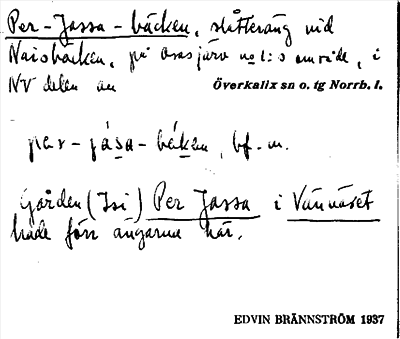 Per-Jassa-bäcken, slåtteräng vid
Naisbäcken, på osasjärv no 1:s område, i
NV delen av Överkalix sn o. tg Norrb. l.
per-jása-bäken, bf. m.
Gården (Isi) Per Jassa i Vännäset
hade förr ängarna här.
EDVIN BRÄNNSTRÖM 1937